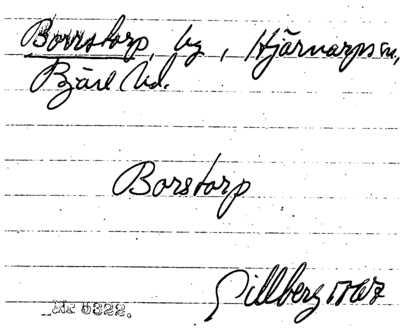 Borrstorp, by, Hjärnarps sn,
Bjäre hd.
Borstorp
Gillberg 1767
Nr 5322.